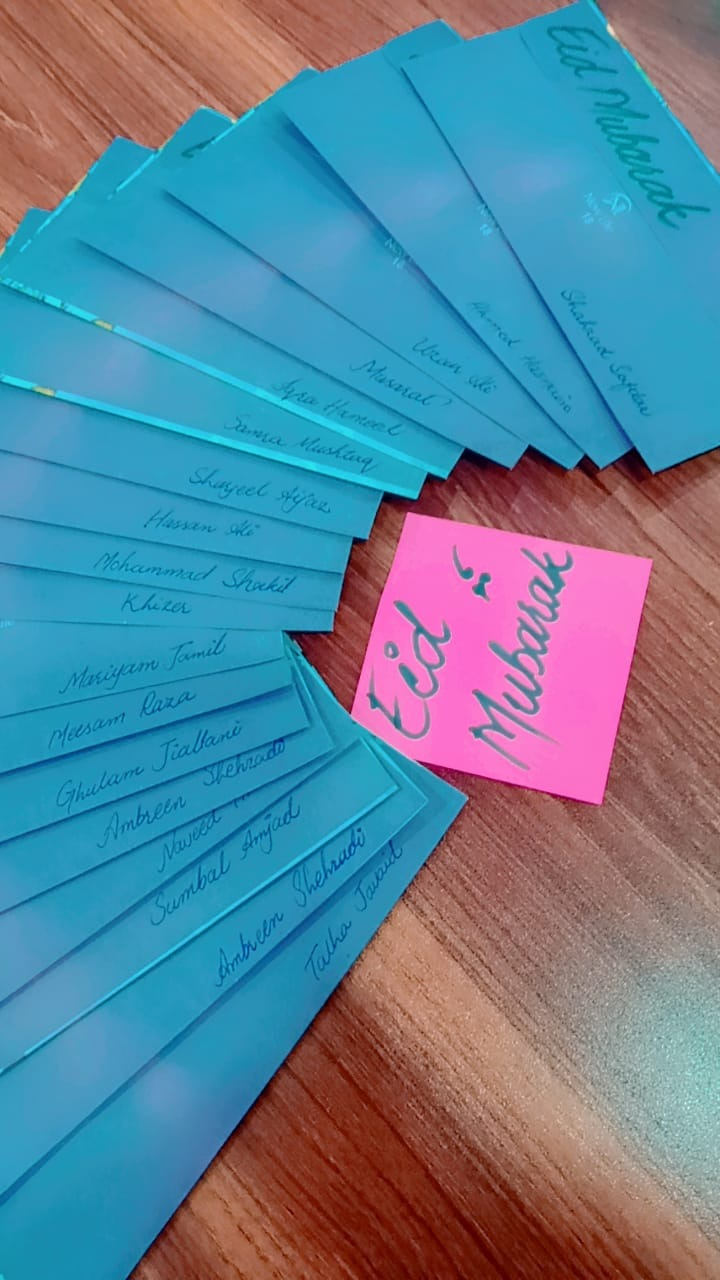 Eid Mubarak
Shahzad Safdar
Ahmed
Uzair Ali
Musarat
Iqra Hameed
Samra Mushtaq
Shajeel Aijaz
Hassan Ali
Mohammad Shakil
Khizer
Mariyam Jamil
Meesam Raza
Ghulam Jiallani
Ambreen Shehzadi
Naveed
Sumbal Amjad
Ambreen Shehzadi
Talha Javaid
Eid
Mubarak